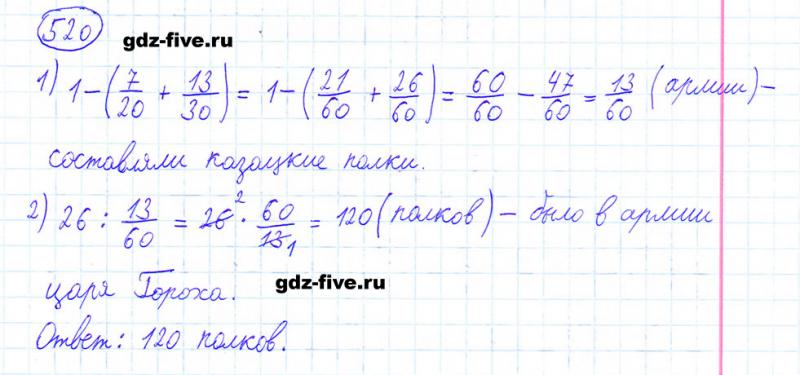 520 gdz-five.ru
1) 1 - (7/20 + 13/30) = 1 - (21/60 + 26/60) = 60/60 - 47/60 = 13/60 (армии) -
составляли казацкие полки.
2) 26 : 13/60 = 26² · 60/13₁ = 120 (полков) - было в армии
царя Гороха. gdz-five.ru
Ответ: 120 полков.